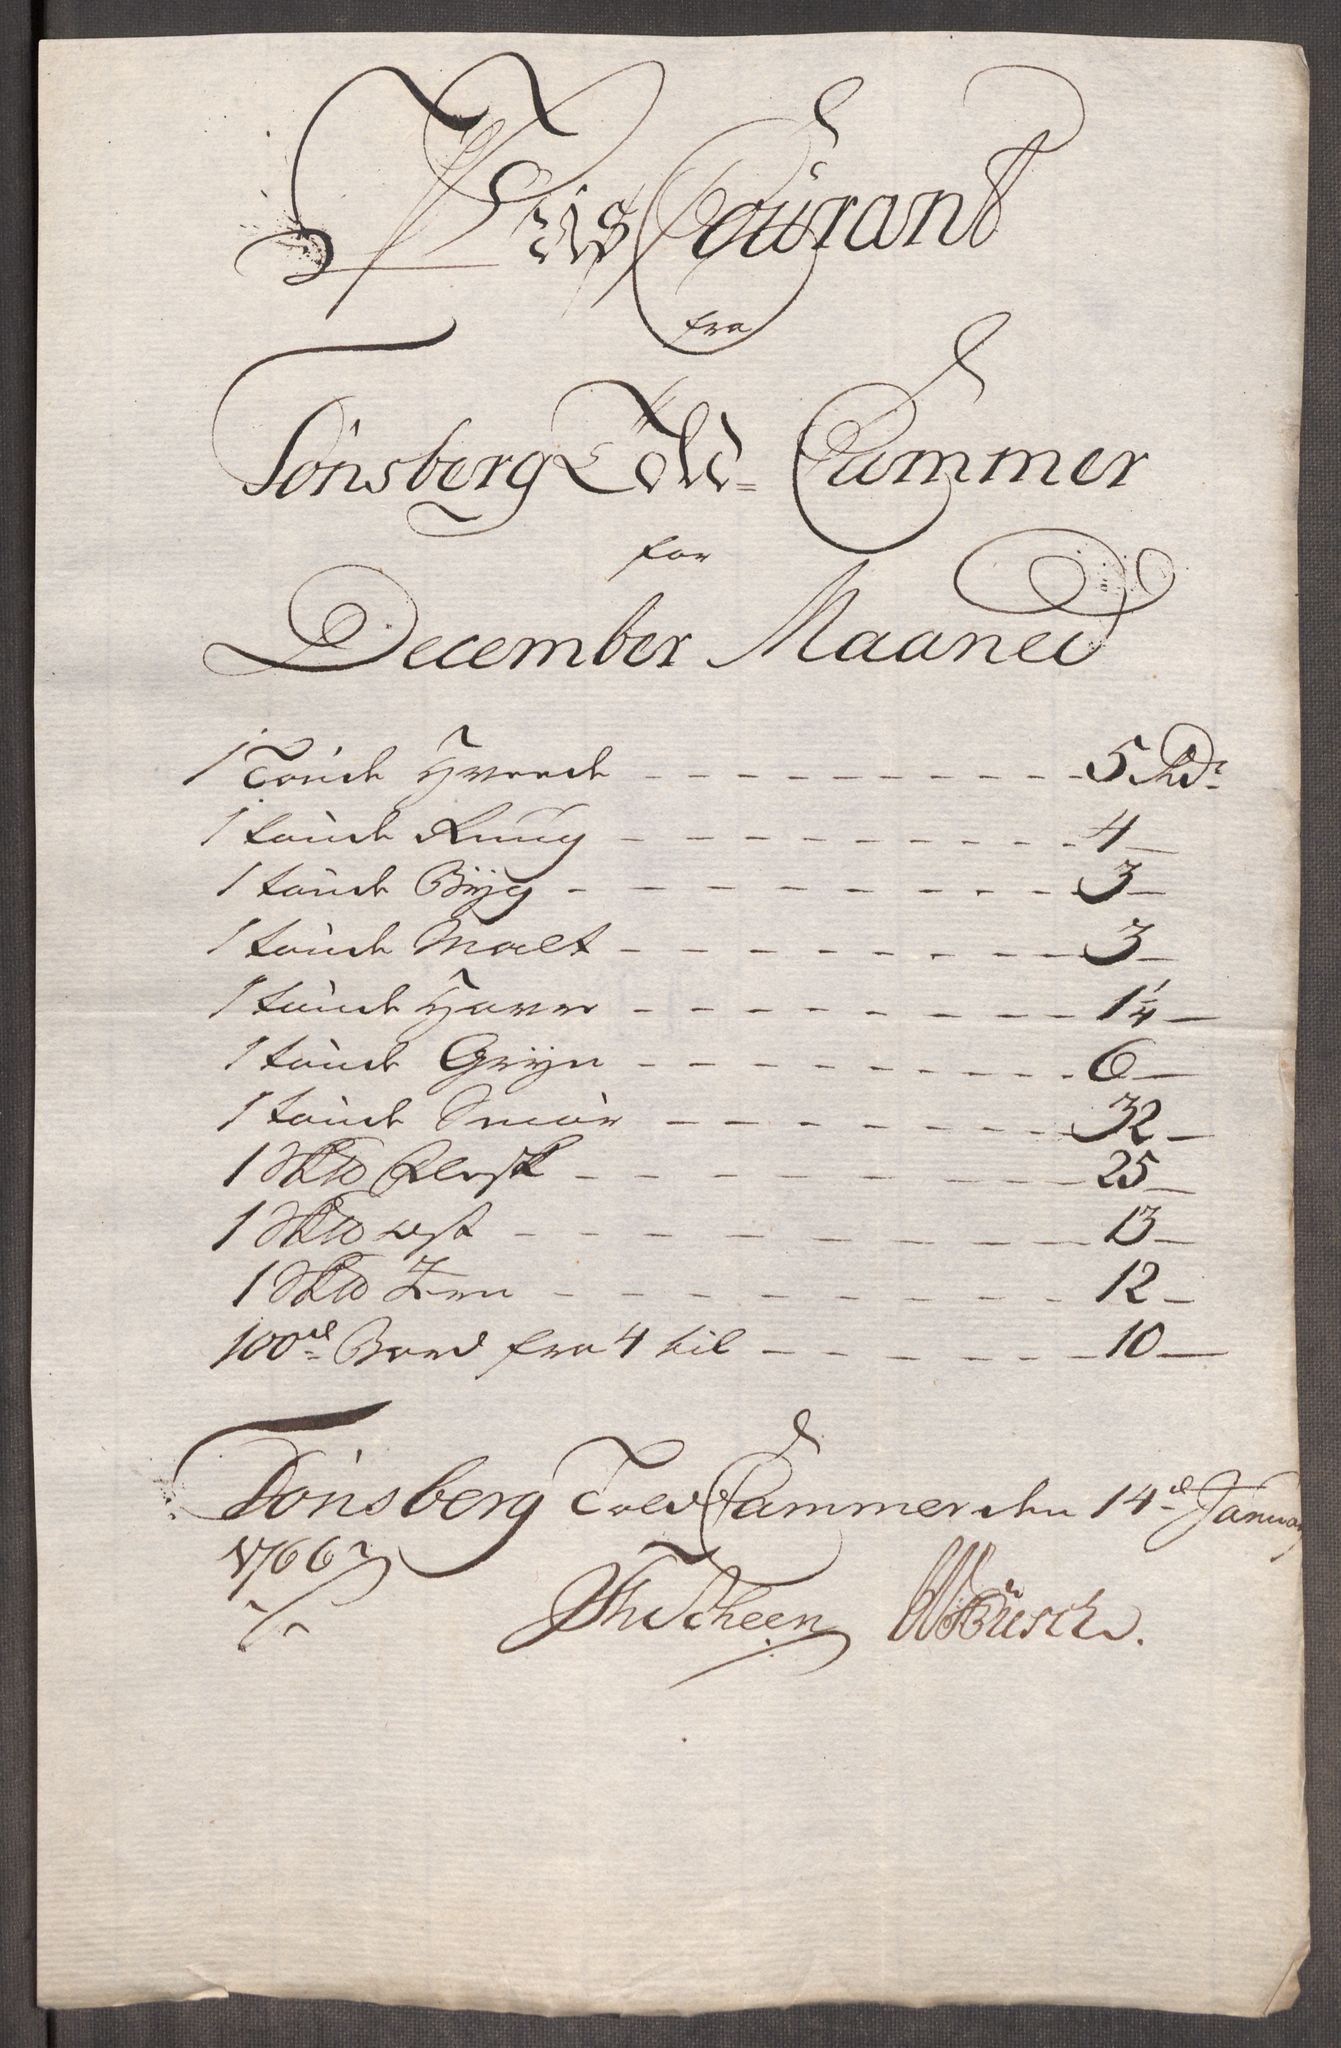 Priis Courant
fra
Tönsberg Told=Cammer
for
December Maaned
1 Tönde Hvede - - - - - - - - - - 5 Rdr
1 tönde Rüug - - - - - - - - - - 4 -
1 tönde Byg - - - - - - - - - - 3 -
1 tönde Malt - - - - - - - - - - 3 -
1 tönde Havre - - - - - - - - - - 1 1/4 -
1 tönde Gryn - - - - - - - - - - 6 -
1 tönde Smör - - - - - - - - - - 32 -
1 Sk℔ Flesk - - - - - - - - - - 25 -
1 Sk℔ ost - - - - - - - - - - 13 -
1 Sk℔ - - - - - - - - - - 12 -
100de Bord fra 4 til - - - - - - - - 10 -
Tönsberg Told Cammer den 14de Januar
1766
Scheen Büsch.